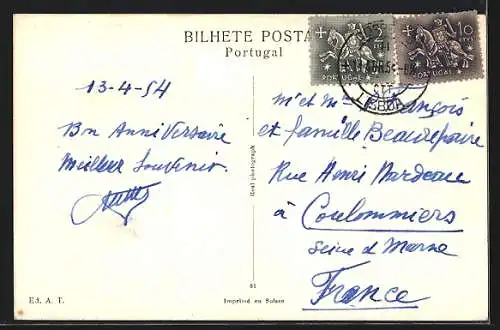 BILHETE POSTA
Portugal
13-4-54
Bon Anniversaire
Meilleur Souvenir
PORTUGAL
10
PORTUGAL
LISBOA
Mr et Mme François
et famille Beaurepaire
Rue Henri
à Coulommiers
Seine et Marne
France
Real photograph
81
Ed. A. T.
Imprimé en Suisse